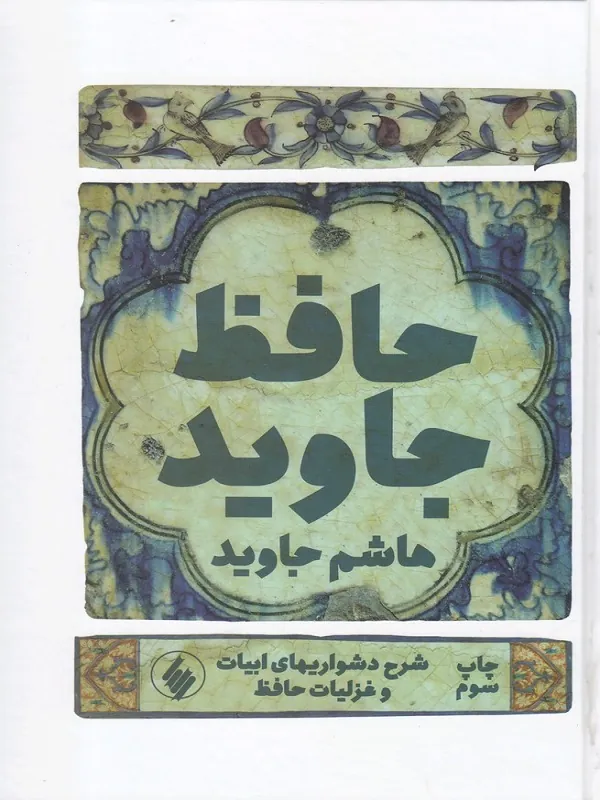 حافظ
جاوید
هاشم جاوید
چاپ
سوم
شرح دشواریهای ابیات
و غزلیات حافظ